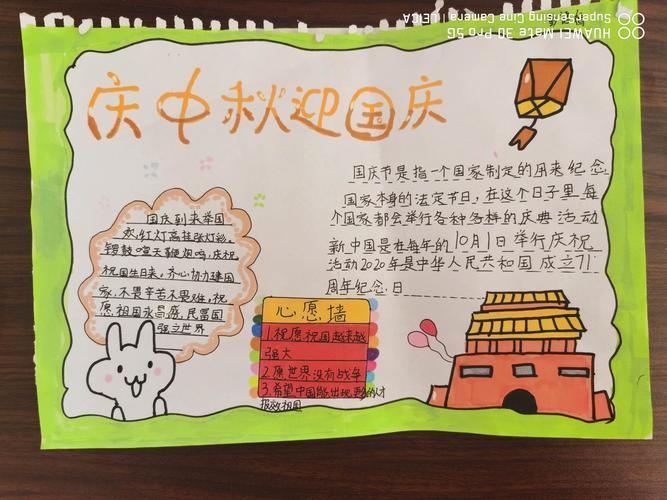 HUAWEI Mate 30 Pro 5G
SuperSensing Cine Camera | LEICA
庆中秋迎国庆
国庆节是指一个国家制定的用来纪念
国家本身的法定节日,在这个日子里每
个国家都会举行各种各样的庆典活动
新中国是在每年的10月1日举行庆祝
活动2020年是中华人民共和国成立71
周年纪念日
国庆到来举国
欢,红灯高挂张灯彩。
锣鼓喧天鞭炮鸣,庆祝
祝国生日来。齐心协力建国
家,不畏辛苦不畏难。祝
愿祖国永昌盛,民富国
强立世界
心愿墙
1.祝愿祝国越来越
强大
2.愿世界没有战争
3.希望中国能出现更多的人才
报效祖国